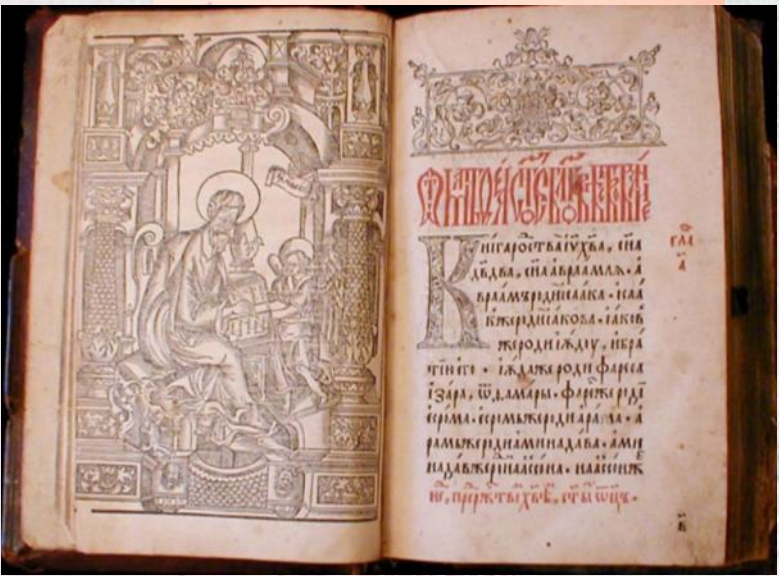 Кни́га ро́ства і҆у҃ хв҃а, сн҃а
дв҃два, сн҃а а҆враа́млѧ. а҆
враа́мъ родѝ і҆саа́ка. і҆саа́
к же родѝ і҆а́кова. і҆а́ков
же родѝ і҆ю́доу, и҆бра́
тїю его̀. і҆ю́да же роди фаре́са
і҆за́ра, ѿ ѳамары. фаре́с же родѝ
есро́ма. есро́мъ же роди а҆ра́ма. а҆
ра́мъ же роди а҆минада́ва. а҆ми
нада́в же ро наассо́на. наассо́н ж
хв҃ѣ, ст҃ы ѿц҃ъ.
гла
а҃
в҃